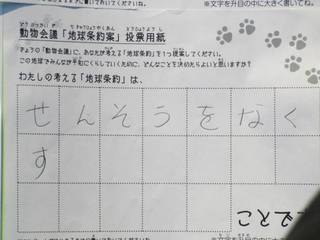 ※文字を升目の中に大きく書いてね。
動物会議「地球条約案」投票用紙
きょうの「動物会議」に、あなたが考える「地球条約」を1つ提案してください。
この地球でみんなが平和にくらしていくために、どんなことを決めたらよいと思いますか?
わたしの考える「地球条約」は、
せんそうをなく
す